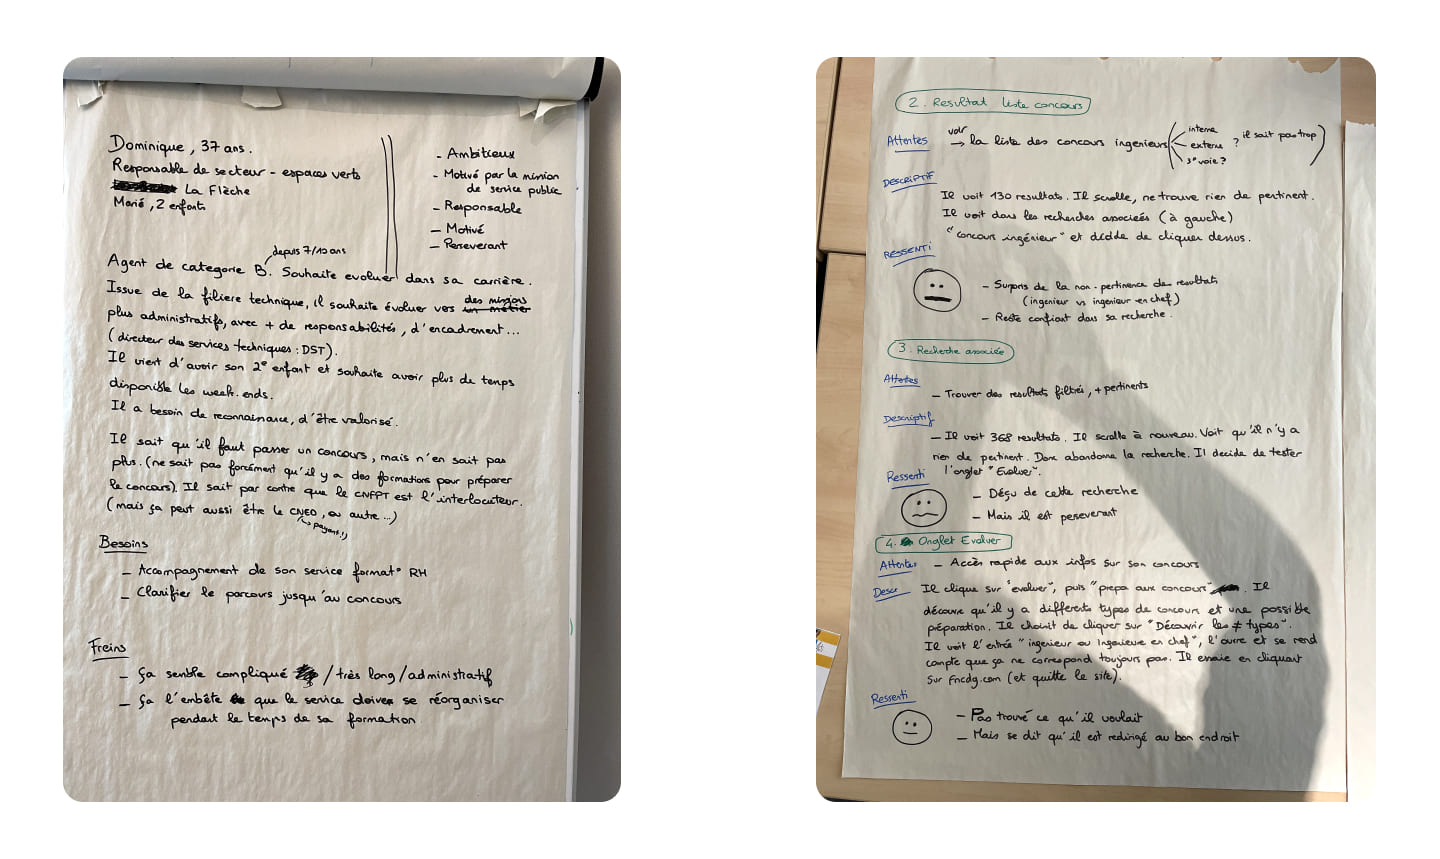 Dominique, 37 ans.
Responsable de secteur - espaces verts
La Flèche
Marié, 2 enfants
- Ambitieux
- Motivé par la mission
de service public
- Responsable
- Motivé
- Perseverant
depuis 7/10 ans
Agent de categorie B. Souhaite evoluer dans sa carrière.
Issue de la filiere technique, il souhaite évoluer vers un métier des missions
plus administratifs, avec + de responsabilités, d'encadrement...
(directeur des services techniques : DST).
Il vient d'avoir son 2e enfant et souhaite avoir plus de temps
disponible les week-ends.
Il a besoin de reconnaissance, d'être valorisé.
Il sait qu'il faut passer un concours, mais n'en sait pas
plus. (ne sait pas forcément qu'il y a des formations pour préparer
le concours). Il sait par contre que le CNFPT est l'interlocuteur.
(mais ça peut aussi être le CNED, ou autre...)
↳ payant!)
Besoins
- Accompagnement de son service format° RH
- Clarifier le parcours jusqu'au concours
Freins
- Ça semble compliqué / très long / administratif
- Ça l'embête que le service doive se réorganiser
pendant le temps de sa formation
2. Resultat liste concours
Attentes
voir
→ la liste des concours ingenieurs
interne
externe
3e voie ?
? il sait pas trop
DESCRIPTIF
Il voit 130 resultats. Il scrolle, ne trouve rien de pertinent.
Il voit dans les recherches associées (à gauche)
"concours ingénieur" et décide de cliquer dessus.
RESSENTI
- Surpris de la non-pertinence des resultats
(ingenieur vs ingenieur en chef)
- Reste confiant dans sa recherche.
3. Recherche associée
Attentes
- Trouver des resultats filtrés, + pertinents
Descriptif
- Il voit 368 resultats. Il scrolle à nouveau. Voit qu'il n'y a
rien de pertinent. Donc abandonne la recherche. Il decide de tester
l'onglet "Evoluer".
Ressenti
- Déçu de cette recherche
- Mais il est perseverant
4. Onglet Evoluer
Attentes
- Accès rapide aux infos sur son concours
Descr
Il clique sur "evoluer", puis "prepa aux concours". Il
découvre qu'il y a différents types de concours et une possible
préparation. Il choisit de cliquer sur "Découvrir les ≠ types".
Il voit l'entrée "ingenieur ou Ingenieur en chef", l'ouvre et se rend
compte que ça ne correspond toujours pas. Il essaie en cliquant
sur fncdg.com (et quitte le site).
Ressenti
- Pas trouvé ce qu'il voulait
- Mais se dit qu'il est redirigé au bon endroit